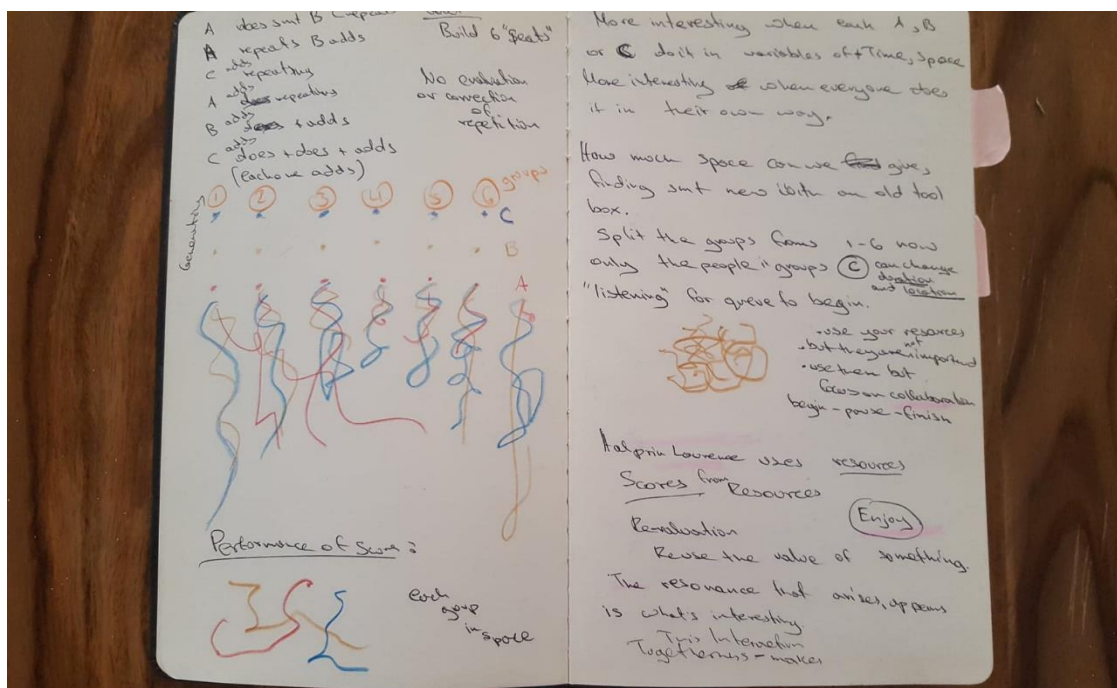 A does smt B repeats
A repeats B adds
C adds repeating
A adds repeating
B adds + adds
C does + does + adds
(each one adds)
Build 6 "beats"
No evaluation
or correction
of
repetition
Generating
1 2 3 4 5 6 groups
C
B
A
Performance of Score:
each
group
in space
More interesting when each A, B
or C do it in variables of + Time, space
More interesting when everyone does
it in their own way.
How much space can we give,
finding smt new with an old tool
box.
Split the groups from 1-6 now
only the people "groups C can change
duration
and location
"listening" for queue to begin.
• use your resources
• but they aren't important
• use them but
focus on collaboration
begin - pause - finish
Halprin Lawrence uses resources
Scores from Resources
Enjoy
Revaluation
Reuse the value of something.
The resonance that arises, appears
is what's interesting.
This Interaction
Togetherness - maker